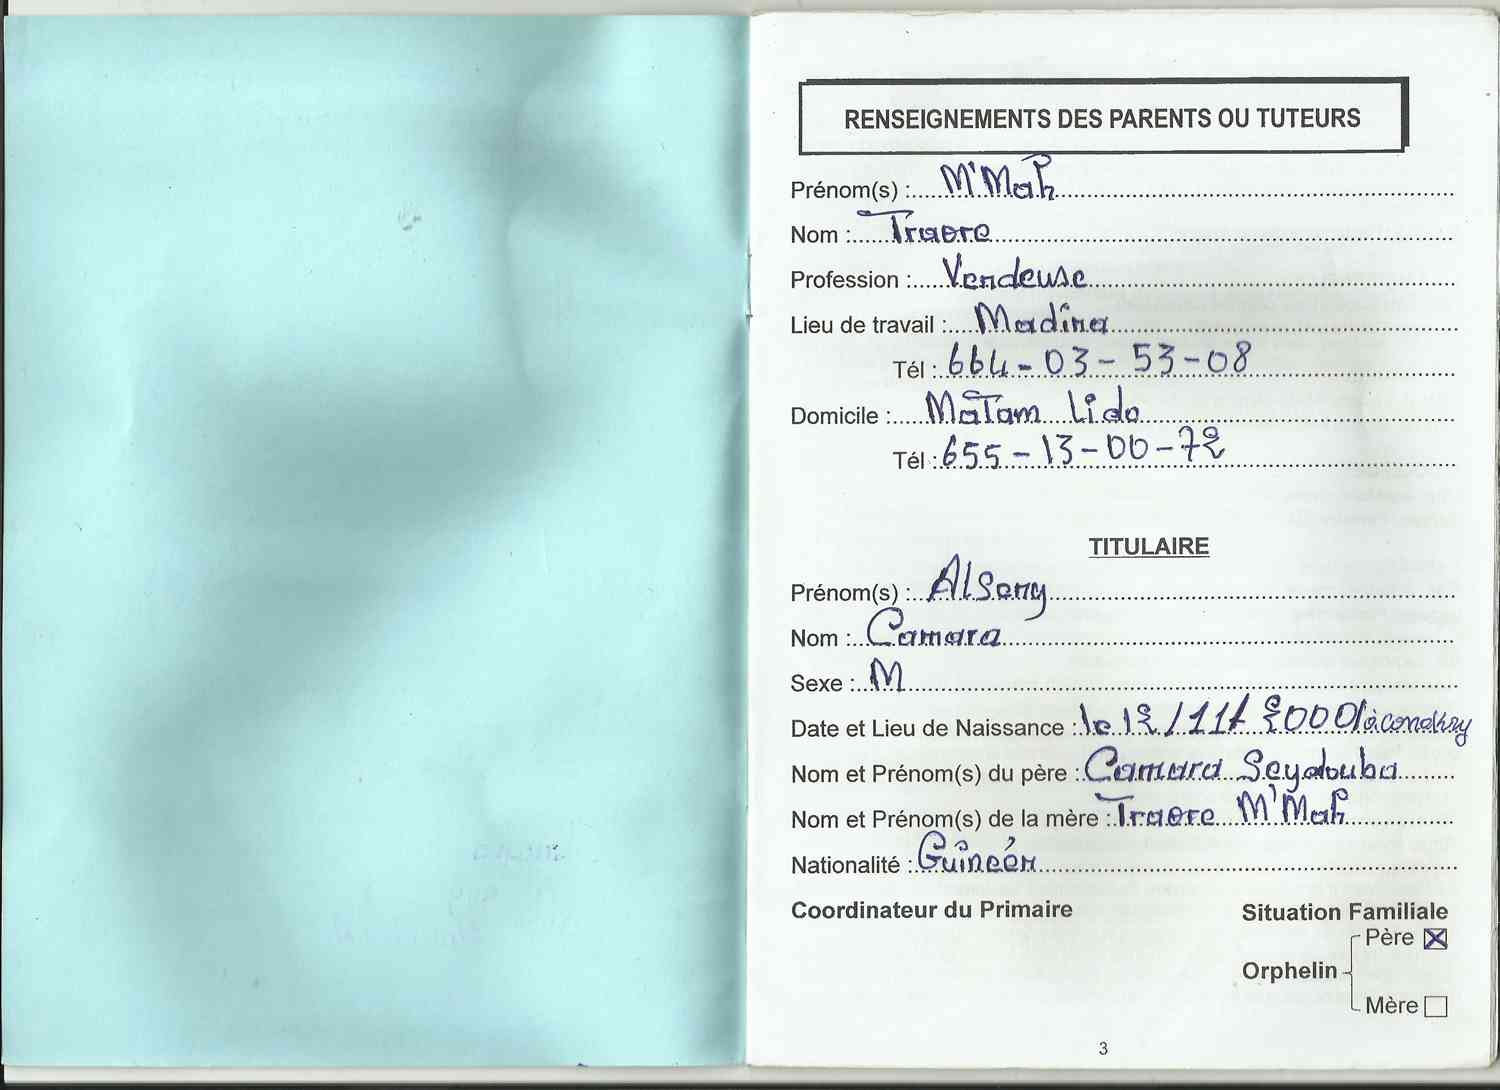 RENSEIGNEMENTS DES PARENTS OU TUTEURS
Prénom(s) : M'Mah
Nom : Traore
Profession : Vendeuse
Lieu de travail : Madina
Tél : 664-03-53-08
Domicile : Matam Lido
Tél : 655-13-00-72
TITULAIRE
Prénom(s) : Alseny
Nom : Camara
Sexe : M
Date et Lieu de Naissance : le 12/11/2000 à conakry
Nom et Prénom(s) du père : Camara Seydouba
Nom et Prénom(s) de la mère : Traore M'Mah
Nationalité : Guinéen
Coordinateur du Primaire
Situation Familiale
Père
Orphelin
Mère
3